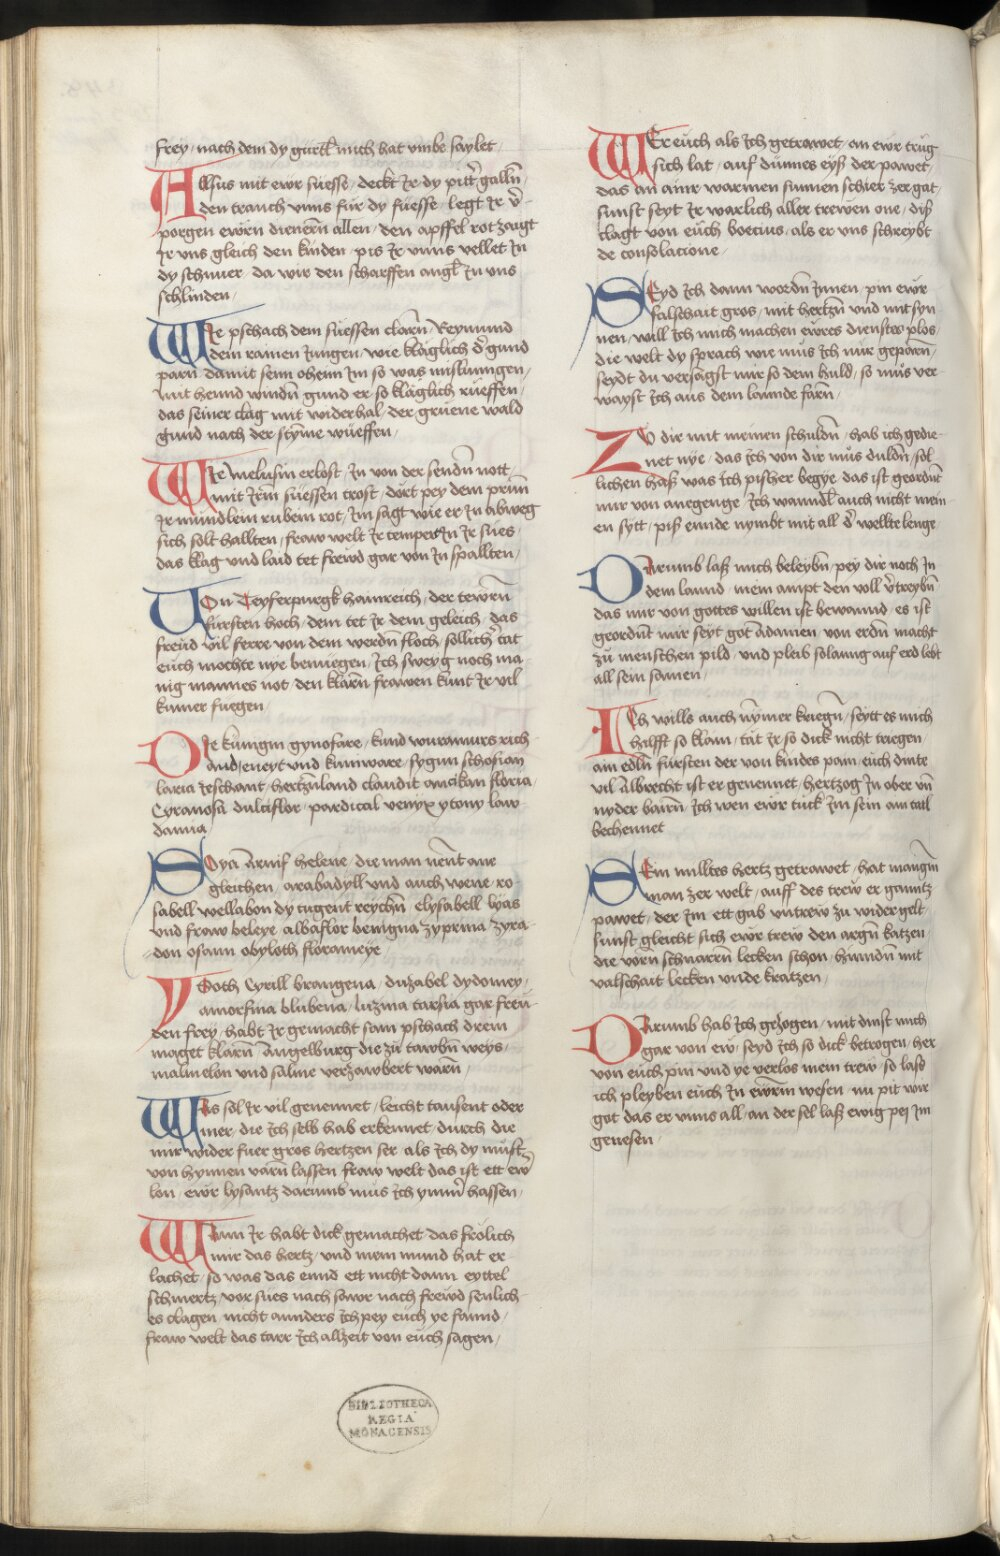 frey / nach dem dy gürtl mich hat vmbe saylet /
Allsus mit ewr süesse / deckt Ir dy pittr gallñ /
den tranch vnns für dy füesse / legt Ir v̄
porgen ewrñ dienerñ allen / den apffel rot zaigt
Ir vns gleich den kinden / pis Ir vnns vellet In
dy schnuer / da wir den scharffen angl In vns
schlinden /
Wie pschach dem süessen clarñ / Reymund
dem rainen Jungen / wie kläglich d gund
parñ / damit seim ohem Im so was mislunngen /
mit hennd windñ gund er so kläglich rüeffen /
das seiner clag mit widerhal / der grüene wald
gund nach der stÿme wüeffen /
Wie Melusin erlost / In von der sendñ nott /
mit Irm süessen trost / dort pey dem prunn
Ir mündlein rubein rot / Im sagt wie er In abweg
sich solt hallten / fraw welt Ir tempert In Ir sües
das klag vnd laid tet frewd gar von In spallten /
Von Teyserpurgk hainreich / der tewrñ
fürsten hoch / dem tet Ir dem geleich / das
freud vil ferre von dem werdñ floch / sollich tat
euch mochte nye benuegen / Ich sweyg noch ma
nig mannes not / den klarñ frawen kunt Ir vil
kumer fuegen /
Die künigin gynofare / kund wuramurs rich
aud / eneyt vnd kunware / sygun schosian
laria Jeschant / hertzñland claudit ancikan floria /
Cyranosa dulciflor / pardical venyx ytony law
damia /
Soya Arnif helene / die man nent ane
gleichen / arabadyll vnd auch wene / ro
sabell vellabon dy tugent reychñ elysabell lyas
vnd fraw beleye albaflor benigna zyprina zyra
don osann obyloth florameye
Yooth Cyrill brangena / duzabel dydomey /
amorfina blubena / luzina tarsia gar freu
den frey / habt Ir gemachet sam pschach direm
maget klarñ Angelburg die zu tawbñ weys /
malmelon vnd salme verzawbert warñ /
Was sol Ir vil genennet / leicht tausent oder
mer / die Ich selb hab erkennet / durch die
mir wider fuer gros hertzen ser als Ich dy must
von hynnen varñ lassen fraw welt das ist ett ew
lon / ewr lysantz darumb mus Ich ymmr hassen /
Wann Ir habt dick gemachet das frölich
mir das hertz / vnd mein mund hat er
lachet / so was das ennd ett nicht dann eyttel
schmertz / vor sües nach sawr nach frewd senlich
es clagen / nicht annders Ich pey euch ye fannd /
fraw welt das tarr Ich allzeit von euch sagen /
Wer euch als Ich getrawet / an ewr trüg
sich lat / auf dünnes eyß der pawet /
das an ainr warmen sunnen schier zergat /
sunst seyt Ir warlich aller trewen one / diß
clagt von euch boecius / als er vns schreybt
de consolacione /
Seyd Ich dann wordñ Innen / pin ewr
falschait gros / mit hertzñ vnd mit syn
nen / will Ich mich machen ewres dienstes plos /
die welt dy sprach wie mus Ich nur geparñ /
seydt du versagst mir so dein huld / so mus ver
wayst Ich aus dem lannde farñ /
Zu dir mit meinen schuldñ / hab ich gedie
net nye / das Ich von dir mus duldñ / sol
lichen haß was Ich pisher begye / das ist geordñt
mir von anegenge / Ich wanndl auch nicht mein
en sytt / piß ennde nymbt mit all d wellte lenge
Darumb laß mich beleybñ / pey dir noch In
dem lannd / mein ampt den voll vtreybñ
das mir von gottes willen ist bewannd / es ist
geordñt mir seyt got Adamen / von erdñ macht
zu menschen pild / vnd pleib solanng auf erd lebt
all sein samen /
Ich wills auch nymer kriegñ / seytt es mich
hilfft so klain / tät Ir so dick nicht triegen /
ain edlñ fürsten der von kindes pain / euch dinte
vil Albrecht ist er genennet / hertzog In ober vñ
nyder bairñ / Ich wen ewr tück Im sein am tail
bechennet
Sein milltes hertz getrawet / hat manigm
man zer welt / auff des trew er ganntz
pawet / der Im ett gab vntrew zu widergelt
sunst gleicht sich ewr trew den argñ katzen
die vorñ schnarrñ lecken schon / hinndñ mit
valschait lecken vnde kratzen /
Darumb hab Ich gezogen / mit dinst mich
gar von ew / seyd Ich so dick betrogen / her
von euch pin vnd ye verlos mein trew / so lass
ich pleyben euch In ewrm wesen / nu pit wir
got das er vnns all / an der sel laß ewig pey Im
genesen /
BIBLIOTHECA
REGIA
MONACENSIS